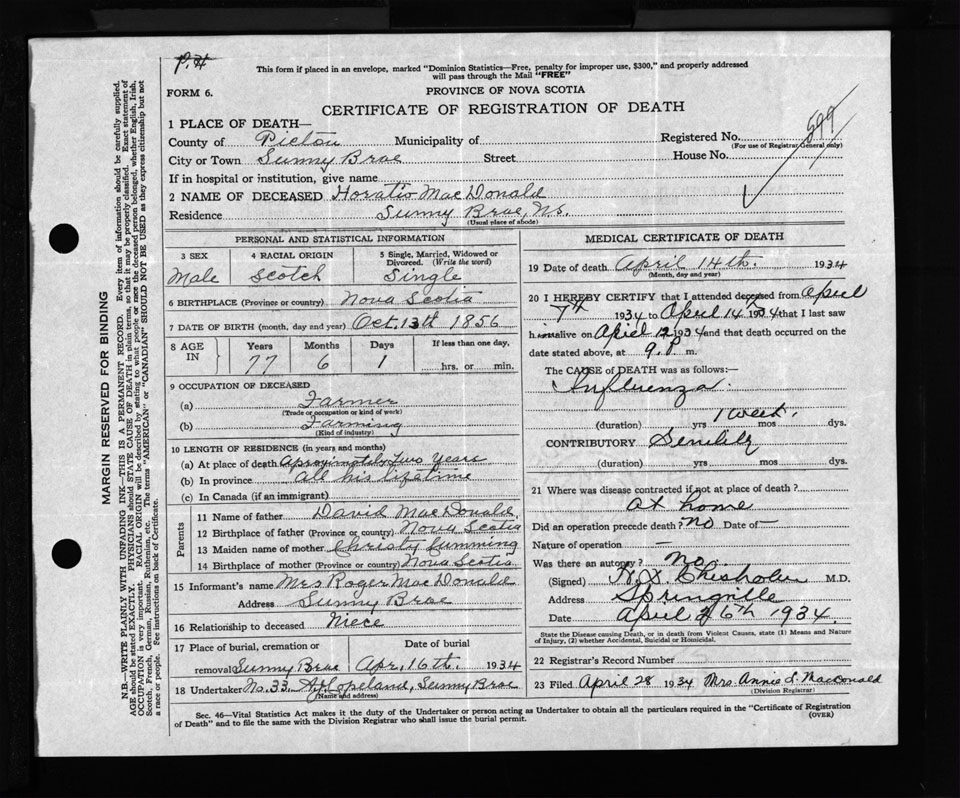 P.H
This form if placed in an envelope, marked "Dominion Statistics—Free, penalty for improper use, $300," and properly addressed
will pass through the Mail "FREE"
FORM 6.
PROVINCE OF NOVA SCOTIA
CERTIFICATE OF REGISTRATION OF DEATH
1 PLACE OF DEATH—
County of Pictou Municipality of Registered No. 599
(For use of Registrar General only)
City or Town Sunny Brae Street House No.
If in hospital or institution, give name
2 NAME OF DECEASED Horatio MacDonald
Residence Sunny Brae, N.S.
(Usual place of abode)
PERSONAL AND STATISTICAL INFORMATION
3 SEX 4 RACIAL ORIGIN 5 Single, Married, Widowed or
Divorced. (Write the word)
Male Scotch Single
6 BIRTHPLACE (Province or country) Nova Scotia
7 DATE OF BIRTH (month, day and year) Oct, 13th 1856
8 AGE IN Years Months Days If less than one day.
77 6 1 hrs. or min.
9 OCCUPATION OF DECEASED
(a) Farmer
(Trade or occupation or kind of work)
(b) Farming
(Kind of industry)
10 LENGTH OF RESIDENCE (in years and months)
(a) At place of death Aproximatly Two Years
(b) In province All his lifetime
(c) In Canada (if an immigrant)
Parents
11 Name of father David MacDonald
12 Birthplace of father (Province or country) Nova Scotia
13 Maiden name of mother Christy Cumming
14 Birthplace of mother (Province or country) Nova Scotia
15 Informant's name Mrs Roger MacDonald
Address Sunny Brae
16 Relationship to deceased Niece
17 Place of burial, cremation or Date of burial
removal Sunny Brae Apr, 16th. 1934
18 Undertaker No. 33. Copeland, Sunny Brae
(Name and address)
MEDICAL CERTIFICATE OF DEATH
19 Date of death April 14th. 1934
(Month, day and year)
20 I HEREBY CERTIFY that I attended deceased from April
7th 1934 to April 14th 1934 that I last saw
him alive on April 12 1934 and that death occurred on the
date stated above, at 9. P. m.
The CAUSE of DEATH was as follows:—
Influenza.
1 week.
(duration) yrs mos dys.
CONTRIBUTORY Senility
(duration) yrs mos dys.
21 Where was disease contracted if not at place of death?
At home
Did an operation precede death? no Date of —
Nature of operation —
Was there an autopsy? no.
(Signed) Chisholm M.D.
Address Springville
Date April 26th 1934
State the Disease causing Death, or in death from Violent Causes, state (1) Means and Nature
of Injury, (2) whether Accidental, Suicidal or Homicidal.
22 Registrar's Record Number
23 Filed April 28 1934 Mrs. Annie S. MacDonald
(Division Registrar)
Sec. 46—Vital Statistics Act makes it the duty of the Undertaker or person acting as Undertaker to obtain all the particulars required in the "Certificate of Registration
of Death" and to file the same with the Division Registrar who shall issue the burial permit.
(OVER)
MARGIN RESERVED FOR BINDING
N.B.—WRITE PLAINLY WITH UNFADING INK—THIS IS A PERMANENT RECORD. Every item of information should be carefully supplied.
AGE should be stated EXACTLY. PHYSICIANS should STATE CAUSE OF DEATH in plain terms, so that it may be properly classified. Exact statement of
OCCUPATION is very important. RACIAL ORIGIN will be described by stating to what people or race the deceased person belonged, whether English, Irish,
Scotch, French, German, Russian, Ruthenian, etc. The terms "AMERICAN" or "CANADIAN" SHOULD NOT BE USED as they express citizenship but not
a race or people. See instructions on back of Certificate.